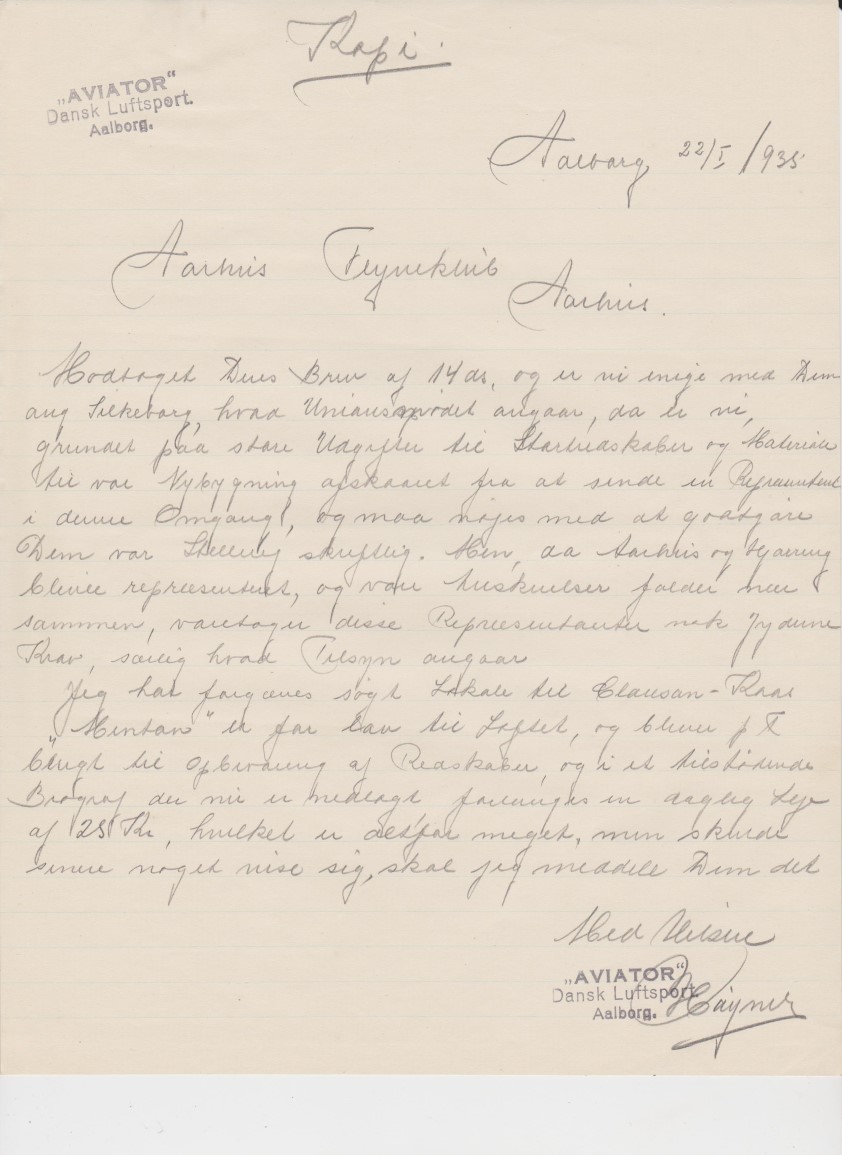 Kopi.
„AVIATOR“
Dansk Luftsport.
Aalborg.
Aalborg 22/I /935
Aarhus Flyveklub
Aarhus.
Modtaget Deres Brev af 14 ds, og er vi enige med Dem
ang Silkeborg, hvad Unionsmødet angaar, da er vi,
grundet paa store Udgifter til Startredskaber og Materiale
til vor Nybygning afskaaret fra at sende en Repræsentant
i denne Omgang, og maa nøjes med at godtgøre
Dem vor Stilling skriftlig. Men, da Aarhus og Hjørring
bliver repræsenteret, og vore Ønskelser falder nær
sammen, varetager disse Repræsentanter nok Jydernes
Krav, særlig hvad Tilsyn angaar
Jeg har forgæves søgt Lokale til Clausan-Kaas
" er for lav til Loftet, og bliver p T
brugt til Opbevaring af Redskaber, og i et tilstødende
Biograf der nu er nedlagt forlanges en daglig Leje
af 25 Kr, hvilket er altfor meget, men skulde
senere noget vise sig, skal jeg meddele Dem det
Med Hilsen
„AVIATOR“
Dansk Luftsport
Aalborg.